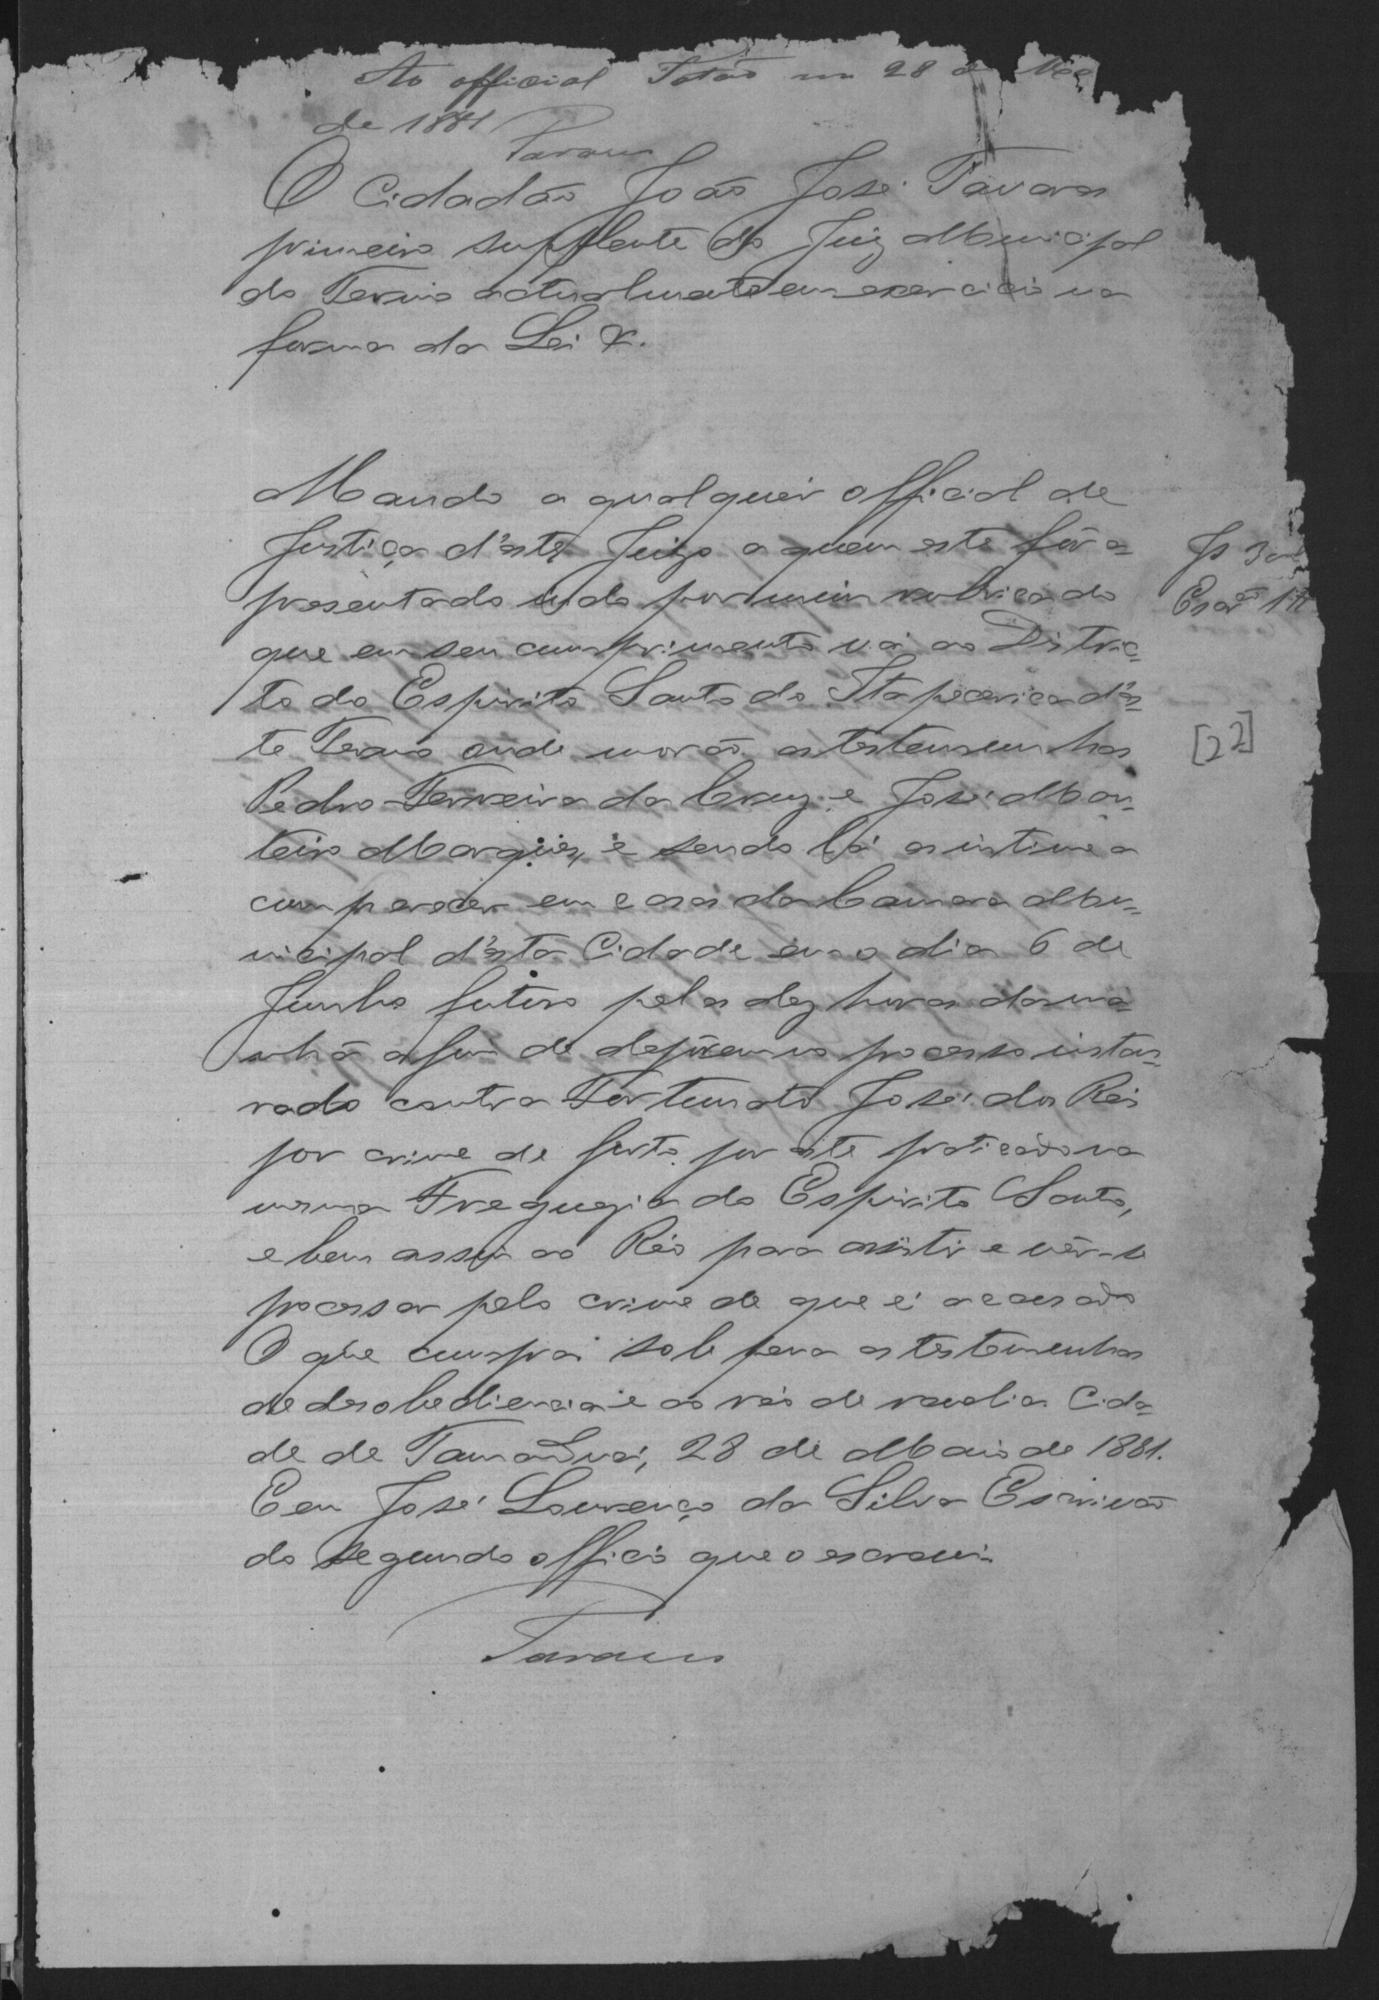 Ao official Totão em 28 de
de 1881
Tavares
O Cidadão João José Tavares
primeiro supplente do Juiz Municipal
do Termo actualmente em exercicio na
forma da Lei &.
Mando a qualquer official de
Justiça d'este Juizo a quem este fôr a-
presentado indo por mim rubricado
que em seu cumprimento vá ao Distric-
to do Espirito Santo do Itapecerica d'es-
te Termo onde morão as testemunhas
Pedro Ferreira da Cruz e José Mon-
teiro Marques, e sendo lá as intime a
comparecer em casa da Camara Mu-
nicipal d'esta Cidade em o dia 6 de
Junho futuro pelas dez horas da ma-
nhã afim de depôrem no processo instau-
rado contra Fortunato José dos Reis
por crime de furto por este praticado na
mesma Freguezia do Espirito Santo,
e bem assim ao Réo para assistir e vêr-se
processar pelo crime de que é accusado
O que cumpra sob pena as testemunhas
de desobediencia e ao réo de revelia Cida-
de de Tamanduá, 28 de Maio de 1881.
E eu José Lourenço da Silva Escrivão
do segundo officio que o escrevi.
Tavares
[22]